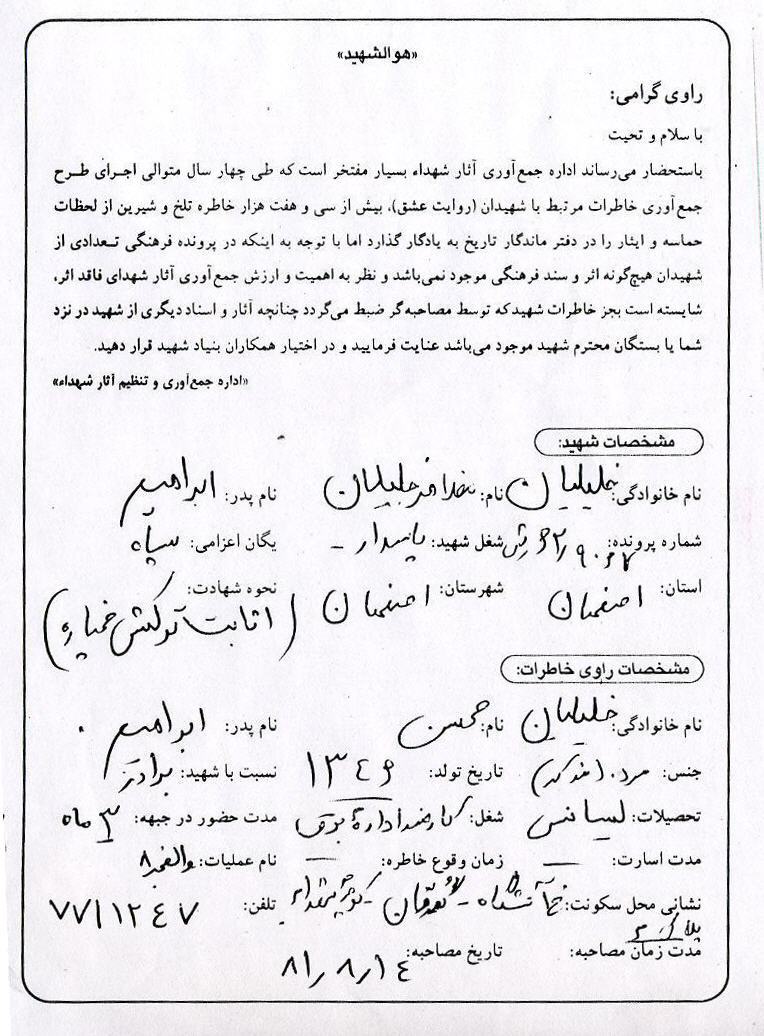 «هوالشهید»
راوی گرامی:
با سلام و تحیت
باستحضار می‌رساند اداره جمع‌آوری آثار شهداء بسیار مفتخر است که طی چهار سال متوالی اجرای طرح
جمع‌آوری خاطرات مرتبط با شهیدان (روایت عشق)، بیش از سی و هفت هزار خاطره تلخ و شیرین از لحظات
حماسه و ایثار را در دفتر ماندگار تاریخ به یادگار گذارد اما با توجه به اینکه در پرونده فرهنگی تعدادی از
شهیدان هیچ‌گونه اثر و سند فرهنگی موجود نمی‌باشد و نظر به اهمیت و ارزش جمع‌آوری آثار شهدای فاقد اثر،
شایسته است بجز خاطرات شهید که توسط مصاحبه‌گر ضبط می‌گردد چنانچه آثار و اسناد دیگری از شهید در نزد
شما یا بستگان محترم شهید موجود می‌باشد عنایت فرمایید و در اختیار همکاران بنیاد شهید قرار دهید.
«اداره جمع‌آوری و تنظیم آثار شهداء»
مشخصات شهید:
نام خانوادگی: خلیلیان نام: نام پدر: ابراهیم
شماره پرونده: شغل شهید: پاسدار - یگان اعزامی: سپاه
استان: اصفهان شهرستان: اصفهان نحوه شهادت:
(اثابت ترکش خمپاره)
مشخصات راوی خاطرات:
نام خانوادگی: خلیلیان نام: محسن نام پدر: ابراهیم
جنس: مرد تاریخ تولد: ۱۳۴۶ نسبت با شهید: برادر
تحصیلات: لیسانس شغل: کارمند اداره برق مدت حضور در جبهه: ۳ ماه
مدت اسارت: — زمان وقوع خاطره: — نام عملیات: والفجر ۸
نشانی محل سکونت: تلفن: ۷۷۱۱۲۴۷
پلاک
مدت زمان مصاحبه: تاریخ مصاحبه: ۸۱/۸/۱۴